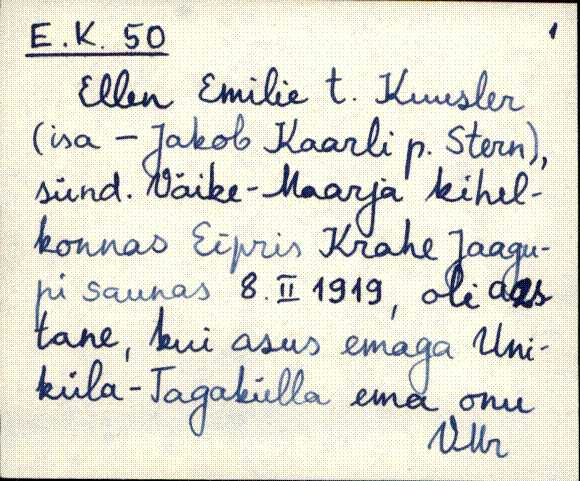 E.K. 50
1
Ellen Emilie t. Kuusler
(isa – Jakob Kaarli p. Stern),
sünd. Väike-Maarja kihel-
konnas Eipris Krahe Jaagu-
pi saunas 8. II 1919, oli aas
tane, kui asus emaga Uni-
küla-Tagakülla ema onu